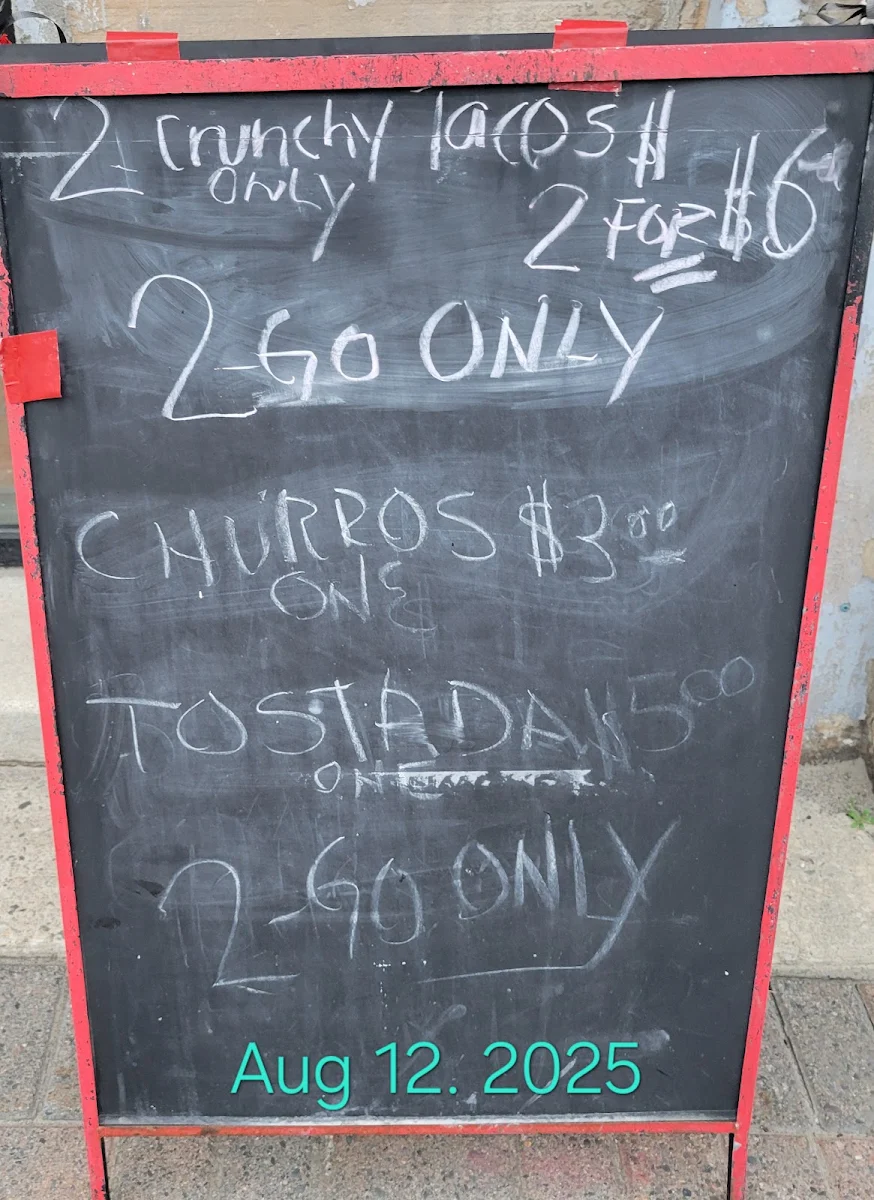 2 Crunchy Tacos $
ONLY 2 FOR $6
2-GO ONLY
CHURROS $3.00
ONE
TOSTADA $5.00
ONE
2-GO ONLY
Aug 12. 2025